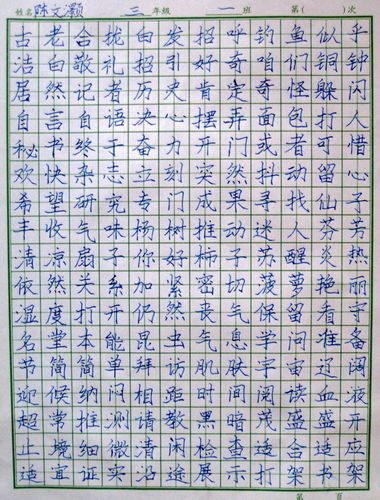 姓名 陈文灏 三 年级 一 班 第( )次
古老合拢白发招呼钓鱼似乎
洁白敬礼招引好奇咱们铜钟
居然记者历史肯定奇怪躲闪
自言自语决心摆弄面包打人
秘书终于奋力开门或者可惜
欢快杂志立刻突然抖动留心
希望研究专门成果寻找仙子
丰收气味杨树推动迷人芬芳
清凉扇子你好柿子苏醒炎热
依然关系加紧密切菠萝艳丽
湿度打开仍然丧气保留看守
名堂本能昆虫气息学问准备
节简简单拜访肌肤宇宙辽阔
迎候纳闷相距时间阅读血液
超常推测请教黑暗茂盛盛开
止境细微清闲检查适合适应
适宜证实沿途展示打架书架
第 页